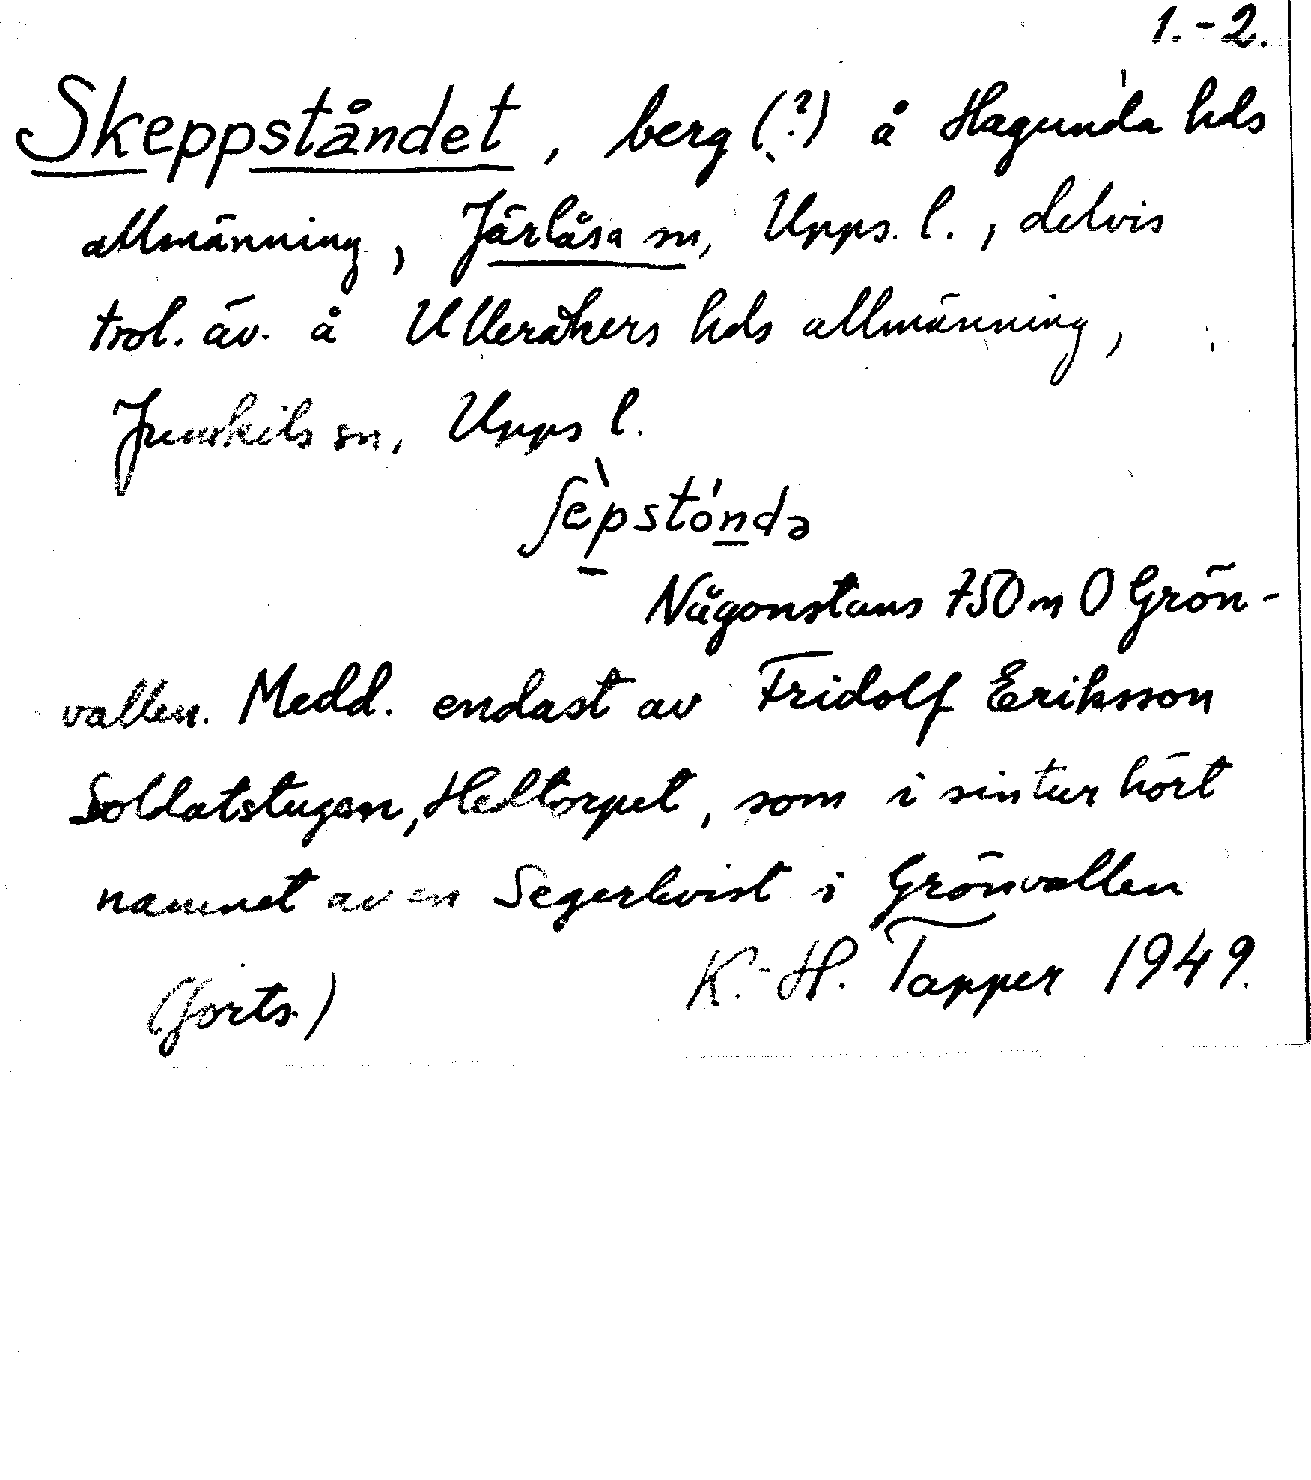 1.-2.
Skeppståndet, berg (?) å Hagunda hds
allmänning, Järlåsa sn, Upps. l., delvis
trol. äv. å Ulleråkers hds allmänning,
Jumkils sn, Upps l.
ʃèpstóndə
Någonstans 750 m O Grön-
vallen. Medd. endast av Fridolf Eriksson
Soldatstugan, Hedtorpet, som i sin tur hört
namnet av en Segerkvist i Grönvallen
(forts.) K.-H. Tapper 1949.